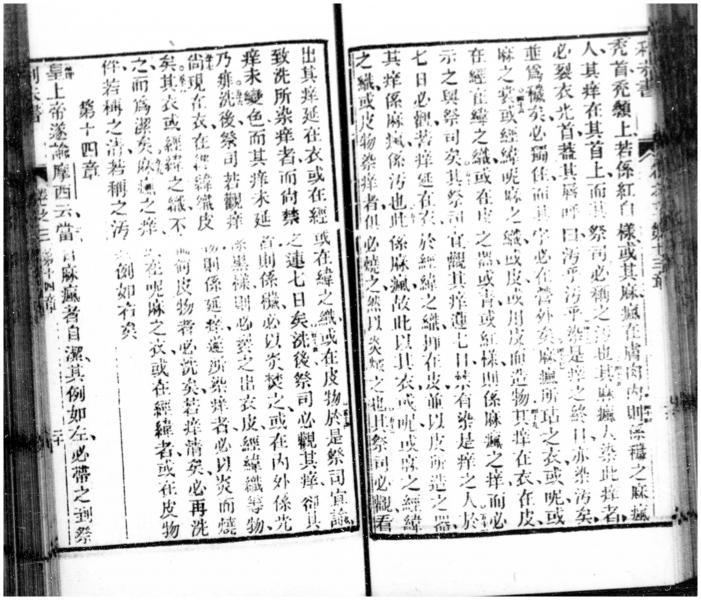 利未書 第十三章
禿首禿額上若係紅白樣或其麻瘋在膚肉內則係穢之麻瘋
人其痒在其首上而其祭司必稱之污也其麻瘋人染此痒者
必裂衣光首蓋其唇呼曰污乎污乎染是痒之終日亦染污矣
並爲穢矣必獨住而其宇必在營外矣麻瘋所玷之衣或呢或
麻之裳或經緯呢麻之織或皮或用皮而造物其痒在衣在皮
在經在緯之織或在皮之器或青或紅樣則係麻瘋之痒而必
示之與祭司矣其祭司宜觀其痒連七日禁有染是痒之人於
七日必觀若痒延在衣於經緯之織抑在皮並以皮所造之器
其痒係麻瘋係污也此係麻瘋故此以其衣或呢或麻之經緯
之織或皮物染痒者俱必燒之然以炎燒之也其祭司必觀看
出其痒延在衣或在經或在緯之織或在皮物於是祭司宜諭
致洗所染痒者而尚禁之連七日矣洗後祭司必觀其痒卻其
痒未變色而其痒未延者則係穢必以炎焚之或在內外係光
乃痒洗後祭司若觀痒係黑樣則必裂之出衣皮經緯織等物
尚現在衣在經緯織皮物則係延痒遂所染痒者必以炎而燒
矣其衣或經緯之織不論何皮物者必洗矣若痒清矣必再洗
之而爲潔矣麻瘋之痒或在呢麻之衣或在經緯者或在皮物
件若稱之潔若稱之污例如右矣
第十四章
皇上帝遂諭摩西云當日麻瘋者自潔其例如左必帶之到祭
利未書 卷之三 第十四章